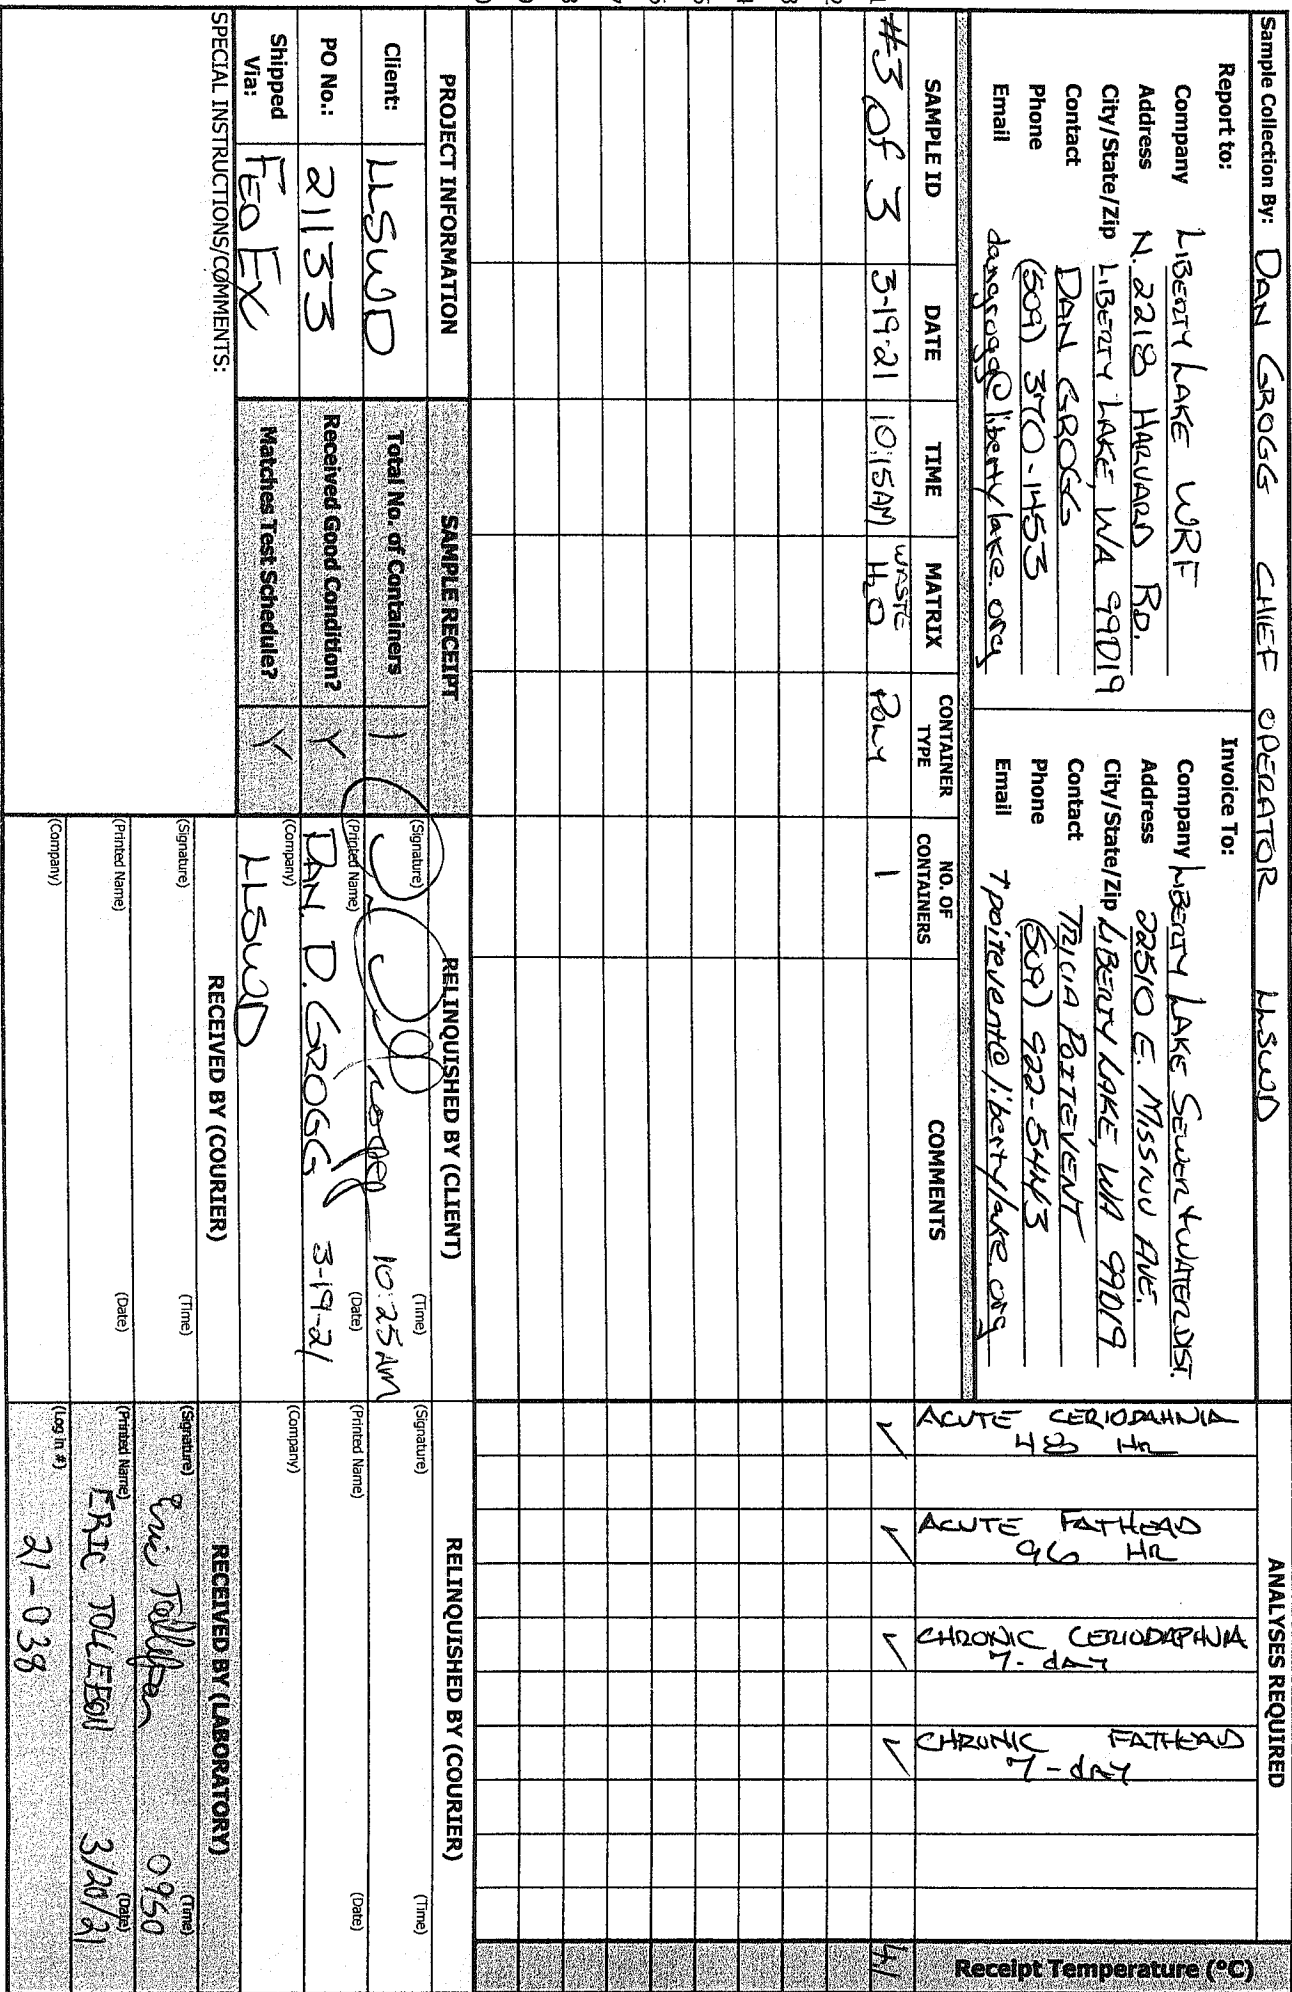 Sample Collection By: DAN GROGG CHIEF OPERATOR LLSWD
Report to:
Company LIBERTY LAKE WRF
Address N. 2218 HARVARD RD.
City/State/Zip LIBERTY LAKE, WA 99019
Contact DAN GROGG
Phone (509) 370-1453
Email dangrogg@libertylake.org
Invoice To:
Company LIBERTY LAKE SEWER & WATER DIST.
Address 22510 E. MISSION AVE.
City/State/Zip LIBERTY LAKE, WA 99019
Contact TRICIA POITEVENT
Phone (509) 922-5443
Email tpoitevent@libertylake.org
ANALYSES REQUIRED
ACUTE CERIODAHNIA
48 HR
ACUTE FATHEAD
96 HR
CHRONIC CERIODAPHNIA
7-day
CHRONIC FATHEAD
7-day
Receipt Temperature (°C)
SAMPLE ID DATE TIME MATRIX CONTAINER TYPE NO. OF CONTAINERS COMMENTS
1 #3 of 3 3-19-21 10:15AM WASTE H2O POLY 1 ✓ ✓ ✓ ✓ 4.1
2
3
4
5
6
7
8
9
0
PROJECT INFORMATION
Client: LLSWD
PO No.: 21133
Shipped Via: FEDEX
SPECIAL INSTRUCTIONS/COMMENTS:
SAMPLE RECEIPT
Total No. of Containers 1
Received Good Condition? Y
Matches Test Schedule? Y
RELINQUISHED BY (CLIENT)
(Signature) (Time)
10:25AM
(Printed Name) (Date)
DAN. D. GROGG 3-19-21
(Company)
LLSWD
RELINQUISHED BY (COURIER)
(Signature) (Time)
(Printed Name) (Date)
(Company)
RECEIVED BY (COURIER)
(Signature) (Time)
(Printed Name) (Date)
(Company)
RECEIVED BY (LABORATORY)
(Signature) (Time)
Eric Tollefsen 0950
(Printed Name) (Date)
ERIC TOLLEFSEN 3/20/21
(Log in #)
21-038